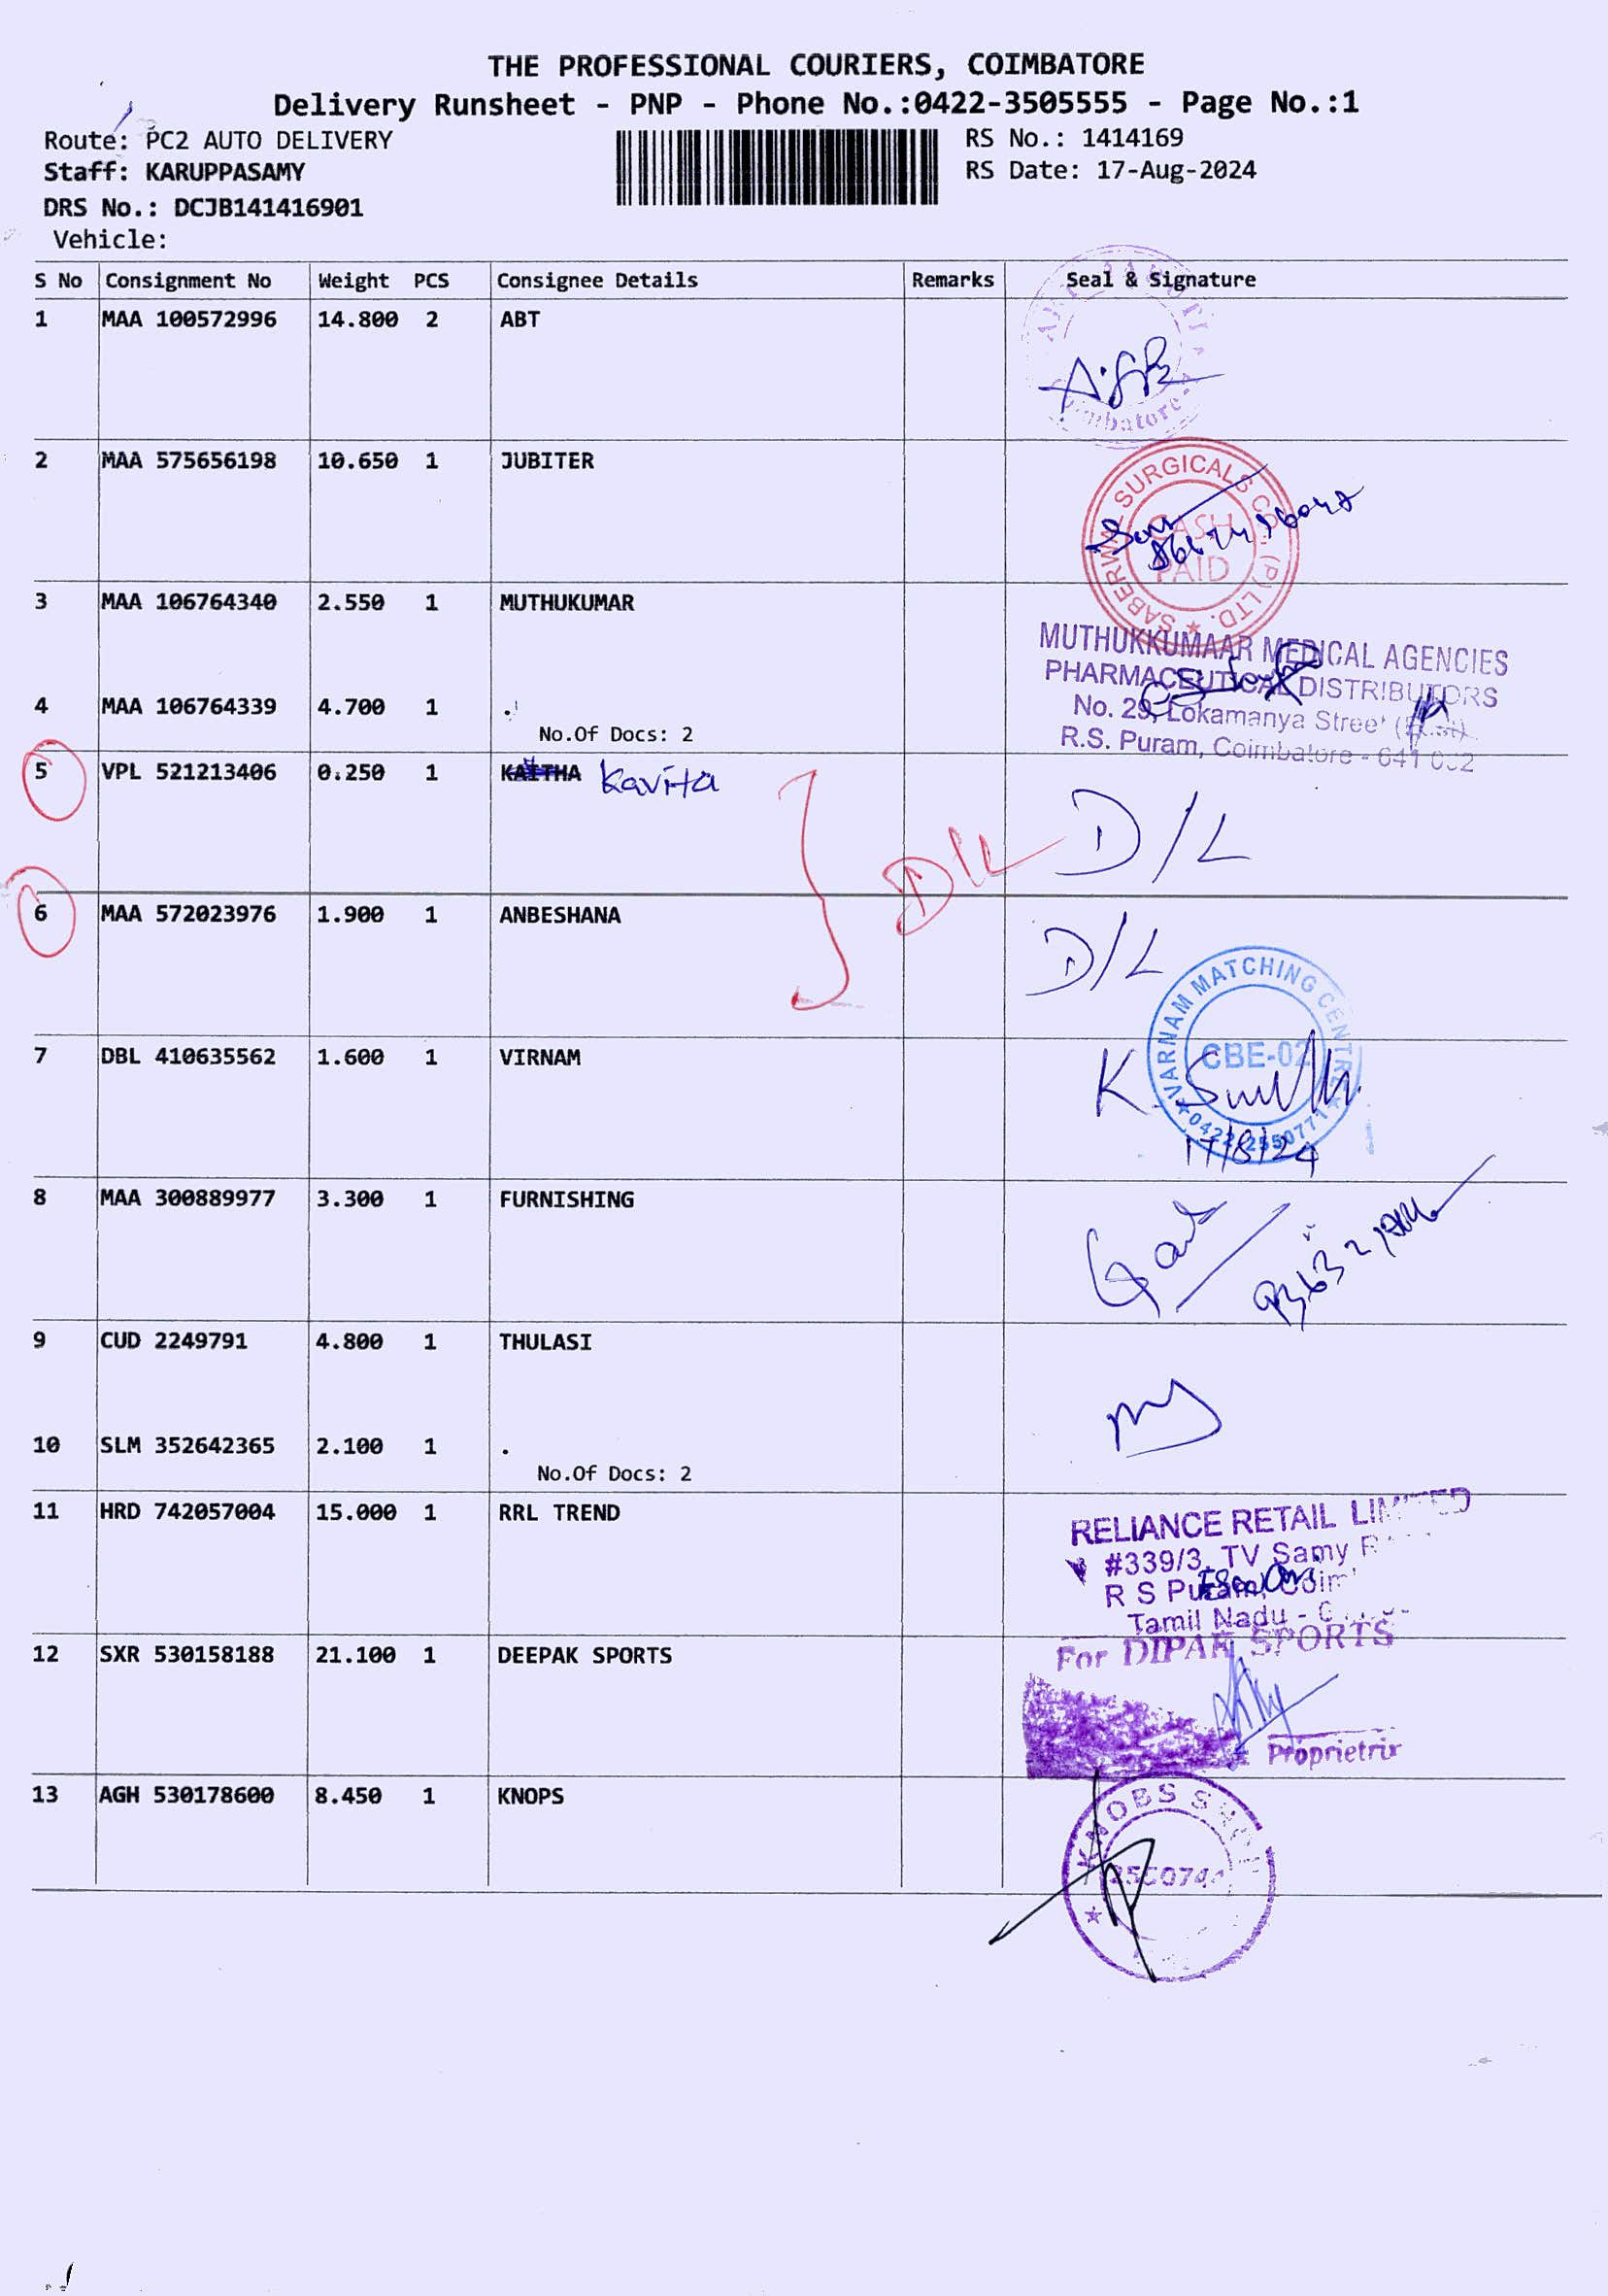 THE PROFESSIONAL COURIERS, COIMBATORE
Delivery Runsheet - PNP - Phone No.:0422-3505555 - Page No.:1
Route: PC2 AUTO DELIVERY
RS No.: 1414169
Staff: KARUPPASAMY
RS Date: 17-Aug-2024
DRS No.: DCJB141416901
Vehicle:
S No Consignment No Weight PCS Consignee Details Remarks Seal & Signature
1 MAA 100572996 14.800 2 ABT
2 MAA 575656198 10.650 1 JUBITER
SABERWAL SURGICALS CO. (P) LTD.
CASH
PAID
3 MAA 106764340 2.550 1 MUTHUKUMAR
MUTHUKKUMAAR MEDICAL AGENCIES
PHARMACEUTICAL DISTRIBUTORS
4 MAA 106764339 4.700 1 .
No. 29, Lokamanya Street
No.Of Docs: 2
R.S. Puram, Coimbatore - 641 002
5 VPL 521213406 0.250 1 KAITHA Kavita
D/L D/L
6 MAA 572023976 1.900 1 ANBESHANA
D/L
7 DBL 410635562 1.600 1 VIRNAM
VARNAM MATCHING CENTRE
CBE-02
0422-2550771
K.
17/8/24
8 MAA 300889977 3.300 1 FURNISHING
9 CUD 2249791 4.800 1 THULASI
10 SLM 352642365 2.100 1 .
No.Of Docs: 2
11 HRD 742057004 15.000 1 RRL TREND
RELIANCE RETAIL LIMITED
#339/3, TV Samy
R S Puram,
Tamil Nadu -
12 SXR 530158188 21.100 1 DEEPAK SPORTS
For DIPAK SPORTS
Proprietrix
13 AGH 530178600 8.450 1 KNOPS
KNOBS